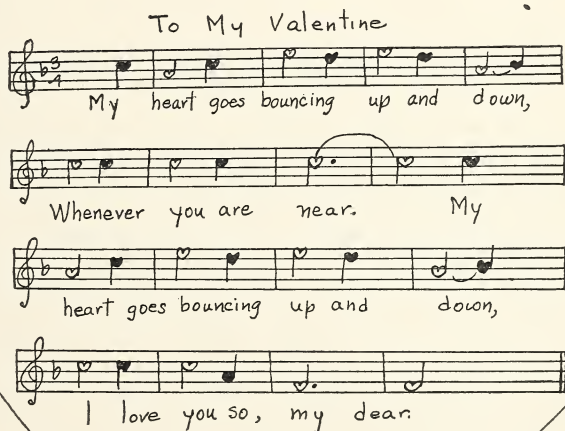 To My Valentine
3
4
My heart goes bouncing up and down,
Whenever you are near. My
heart goes bouncing up and down,
I love you so, my dear.